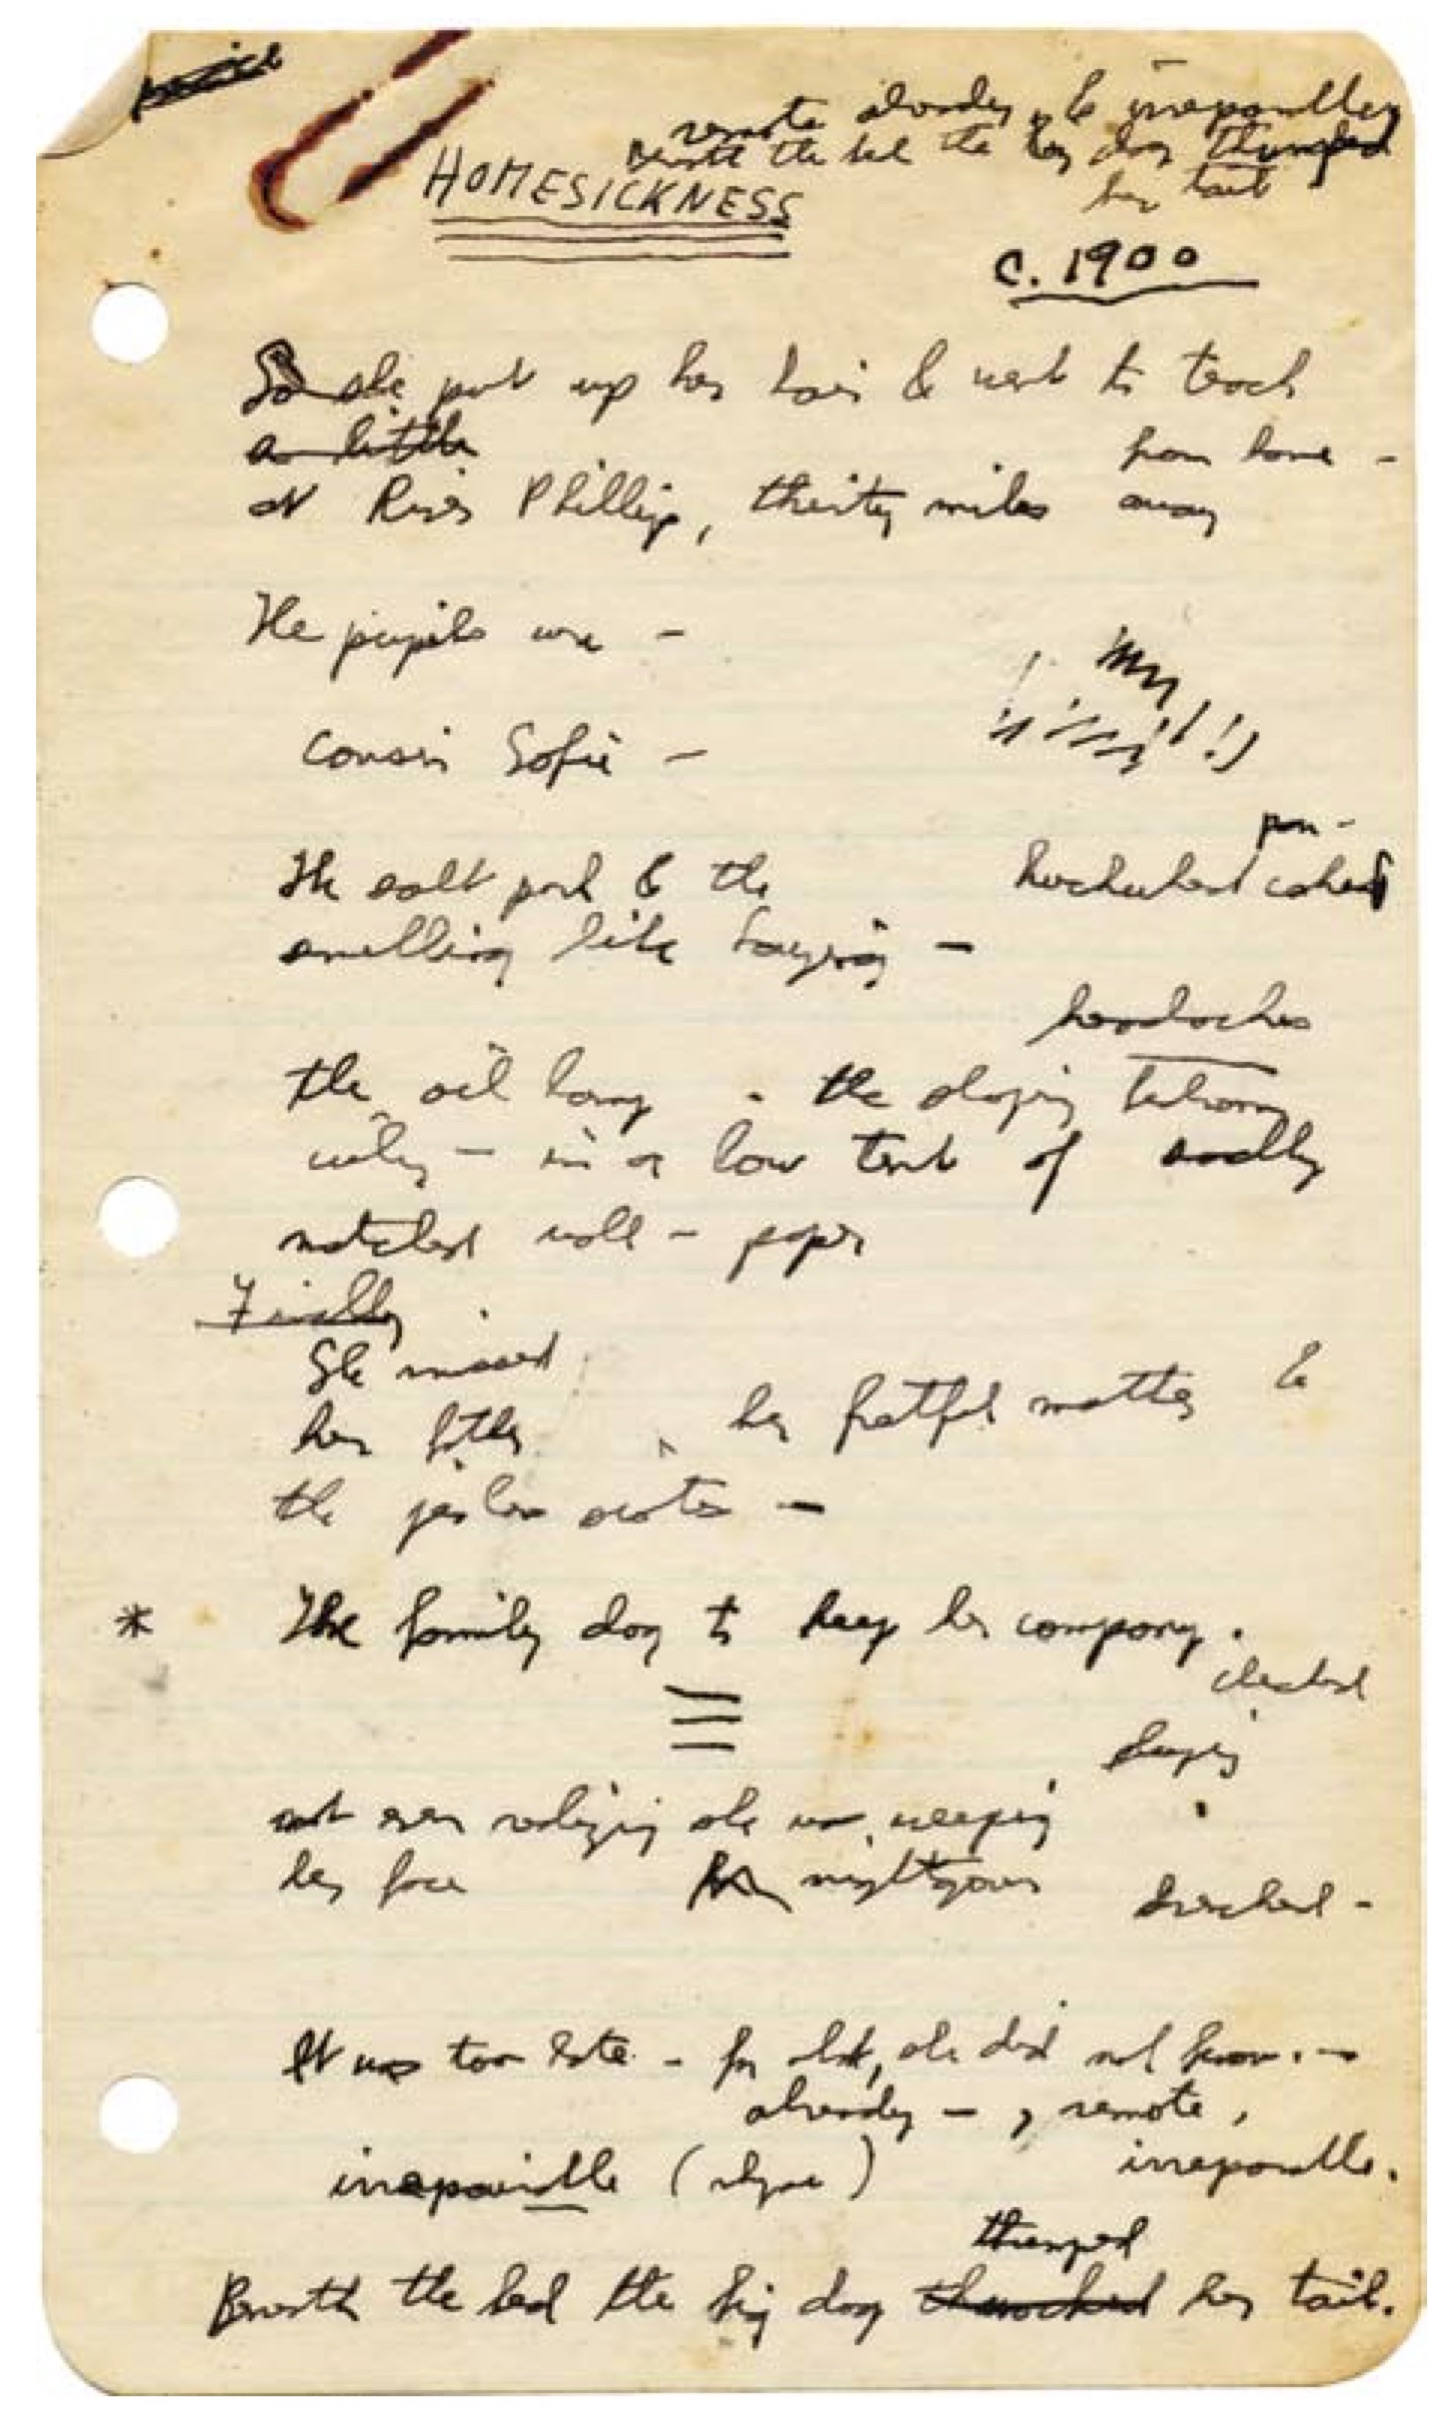 remote already, & irreparably
Beneath the bed the big dog thumped
her tail
HOMESICKNESS
c. 1900
So she put up her hair & went to teach
a little
from home -
at River Phillip, thirty miles away
The pupils were -
Cousin Sofie -
The salt pork & the
buckwheat pan-cakes
smelling like
headaches
the oil lamp - the sloping
in a low tent of badly
matched wall-paper
Finally
She missed
her father, her fretful mother &
the sister -
* The family dog to keep her company.
not even realizing she was weeping
her face her nightgown drenched -
It was too late - for what, she did not know. -
already -, remote,
irreparable ( ) irreparable.
thumped
Beneath the bed the big dog thwacked her tail.